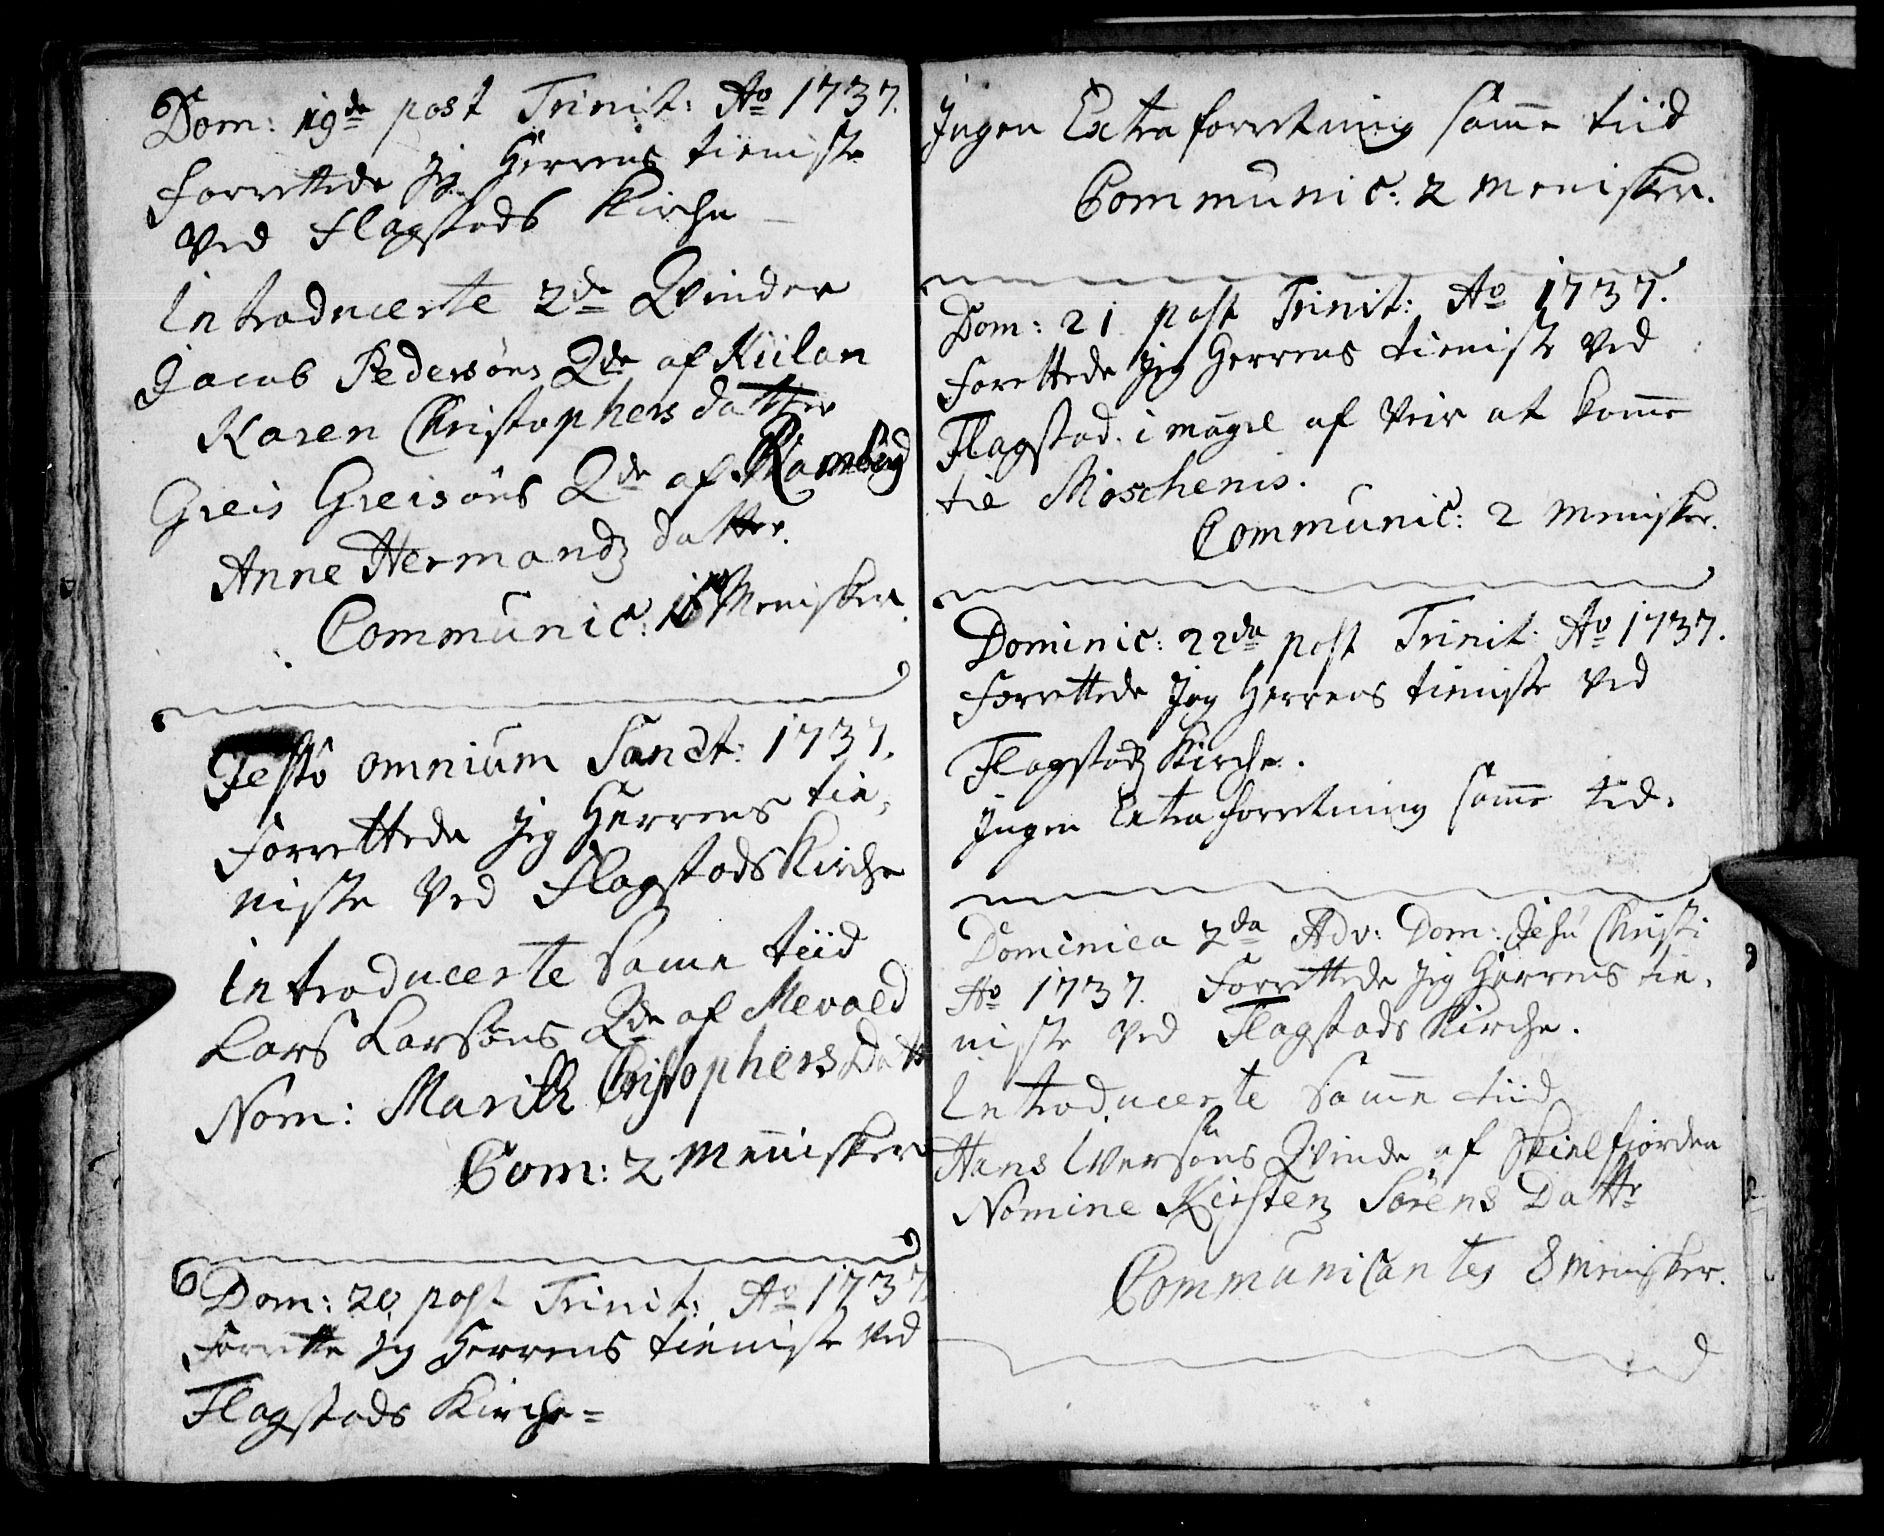 Dom: 19de post Trinit: Ao 1737.
Forrettede jeg Herrens tieniste
ved Flagstads Kirche
Introducerte 2de Qvinder
Jacob Pedersøns Qde af Kiilan
Karen Christophers datter
Greis Greisøns Qde af Ramberg
Anne Hermandz datter.
Communic: Menisker.
Festo omnium Sanct: 1737.
Forrettede jeg Herrens tie,
niste ved Flagstads Kirche
Introducerte Same tiid
Lars Larsøns Qde af Mevold
Nom: Marith Christophers Datt
Com: 2 Menisker
Dom: 20 post Trinit: Ao 1737
Forrette jeg Herrens tieniste ved
Flagstads Kirche =
Ingen Extra forretning same tiid
Communic: 2 menisker.
Dom: 21 post Trinit: Ao 1737.
Forettede jeg Herrens tieniste ved
Flagstad. i magel af veir at komme
til Moschenis.
Communic: 2 menisker.
Dominic: 22da post Trinit: Ao 1737.
Forrettede jeg Herrens tieniste ved
Flagstadz Kirche.
Ingen Extra forretning same tid.
Dominica 2da Adv: Dom: Jesu Christi
Ao 1737. Forrettede jeg Herrens tie,
niste ved Flagstads Kirche.
Introducerte Same tiid
Hans Iversøns Qvinde af Skielfiorden
Nomine Kirsten Sørens Dattr
Communicantes 8 menisker.